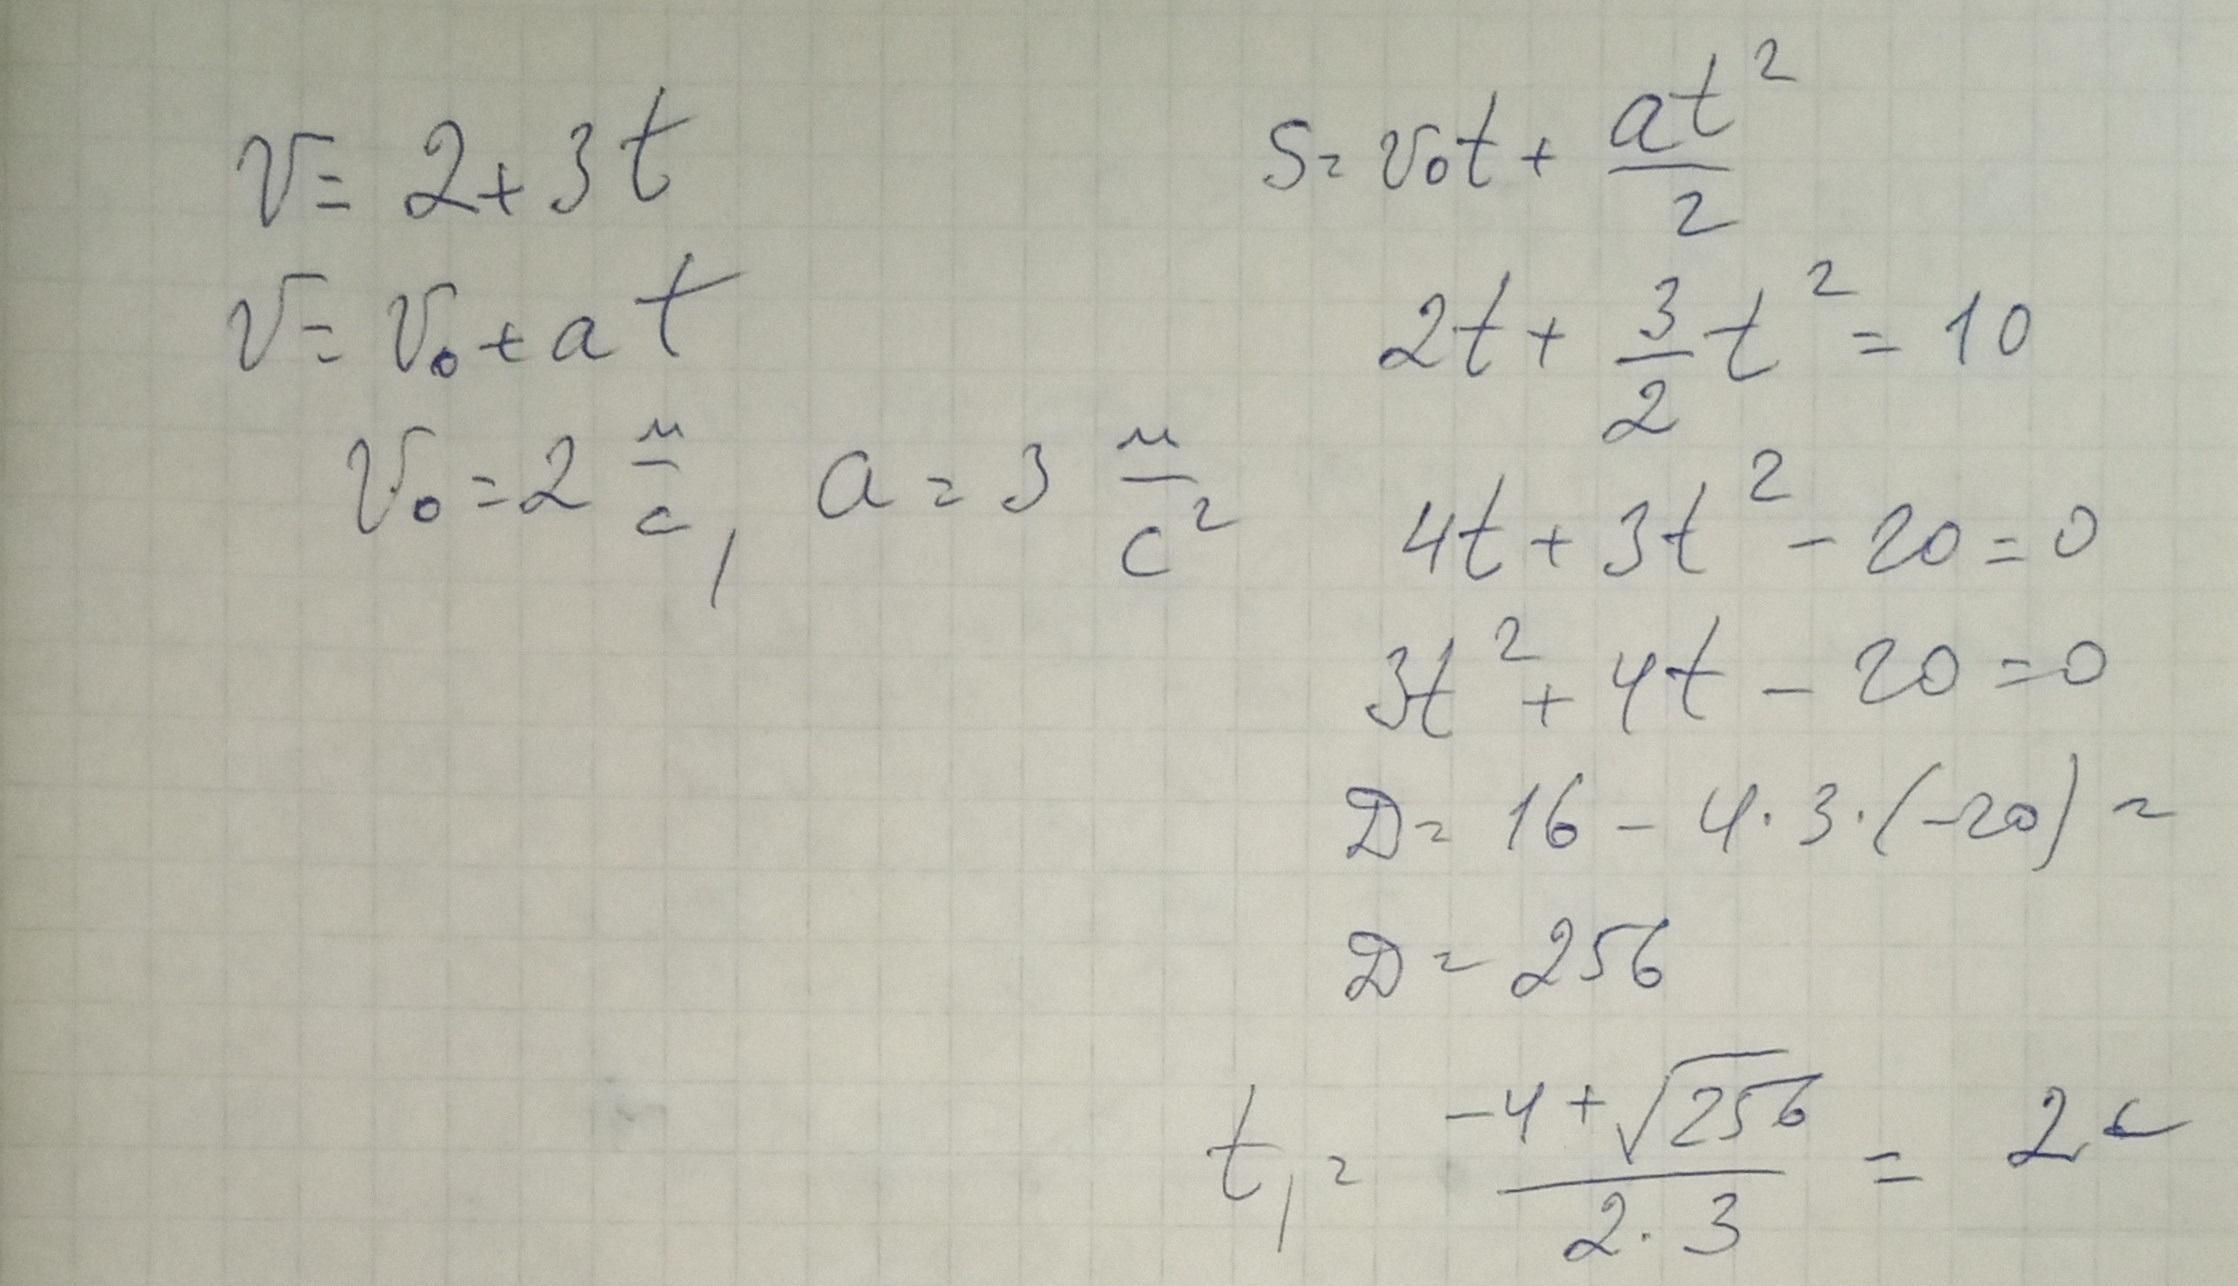 v = 2 + 3t
v = v₀ + at
v₀ = 2 м/с, a = 3 м/с²
S = v₀t + at²/2
2t + 3/2 t² = 10
4t + 3t² - 20 = 0
3t² + 4t - 20 = 0
D = 16 - 4·3·(-20) =
D = 256
t₁ = (-4 + √256)/(2·3) = 2 с